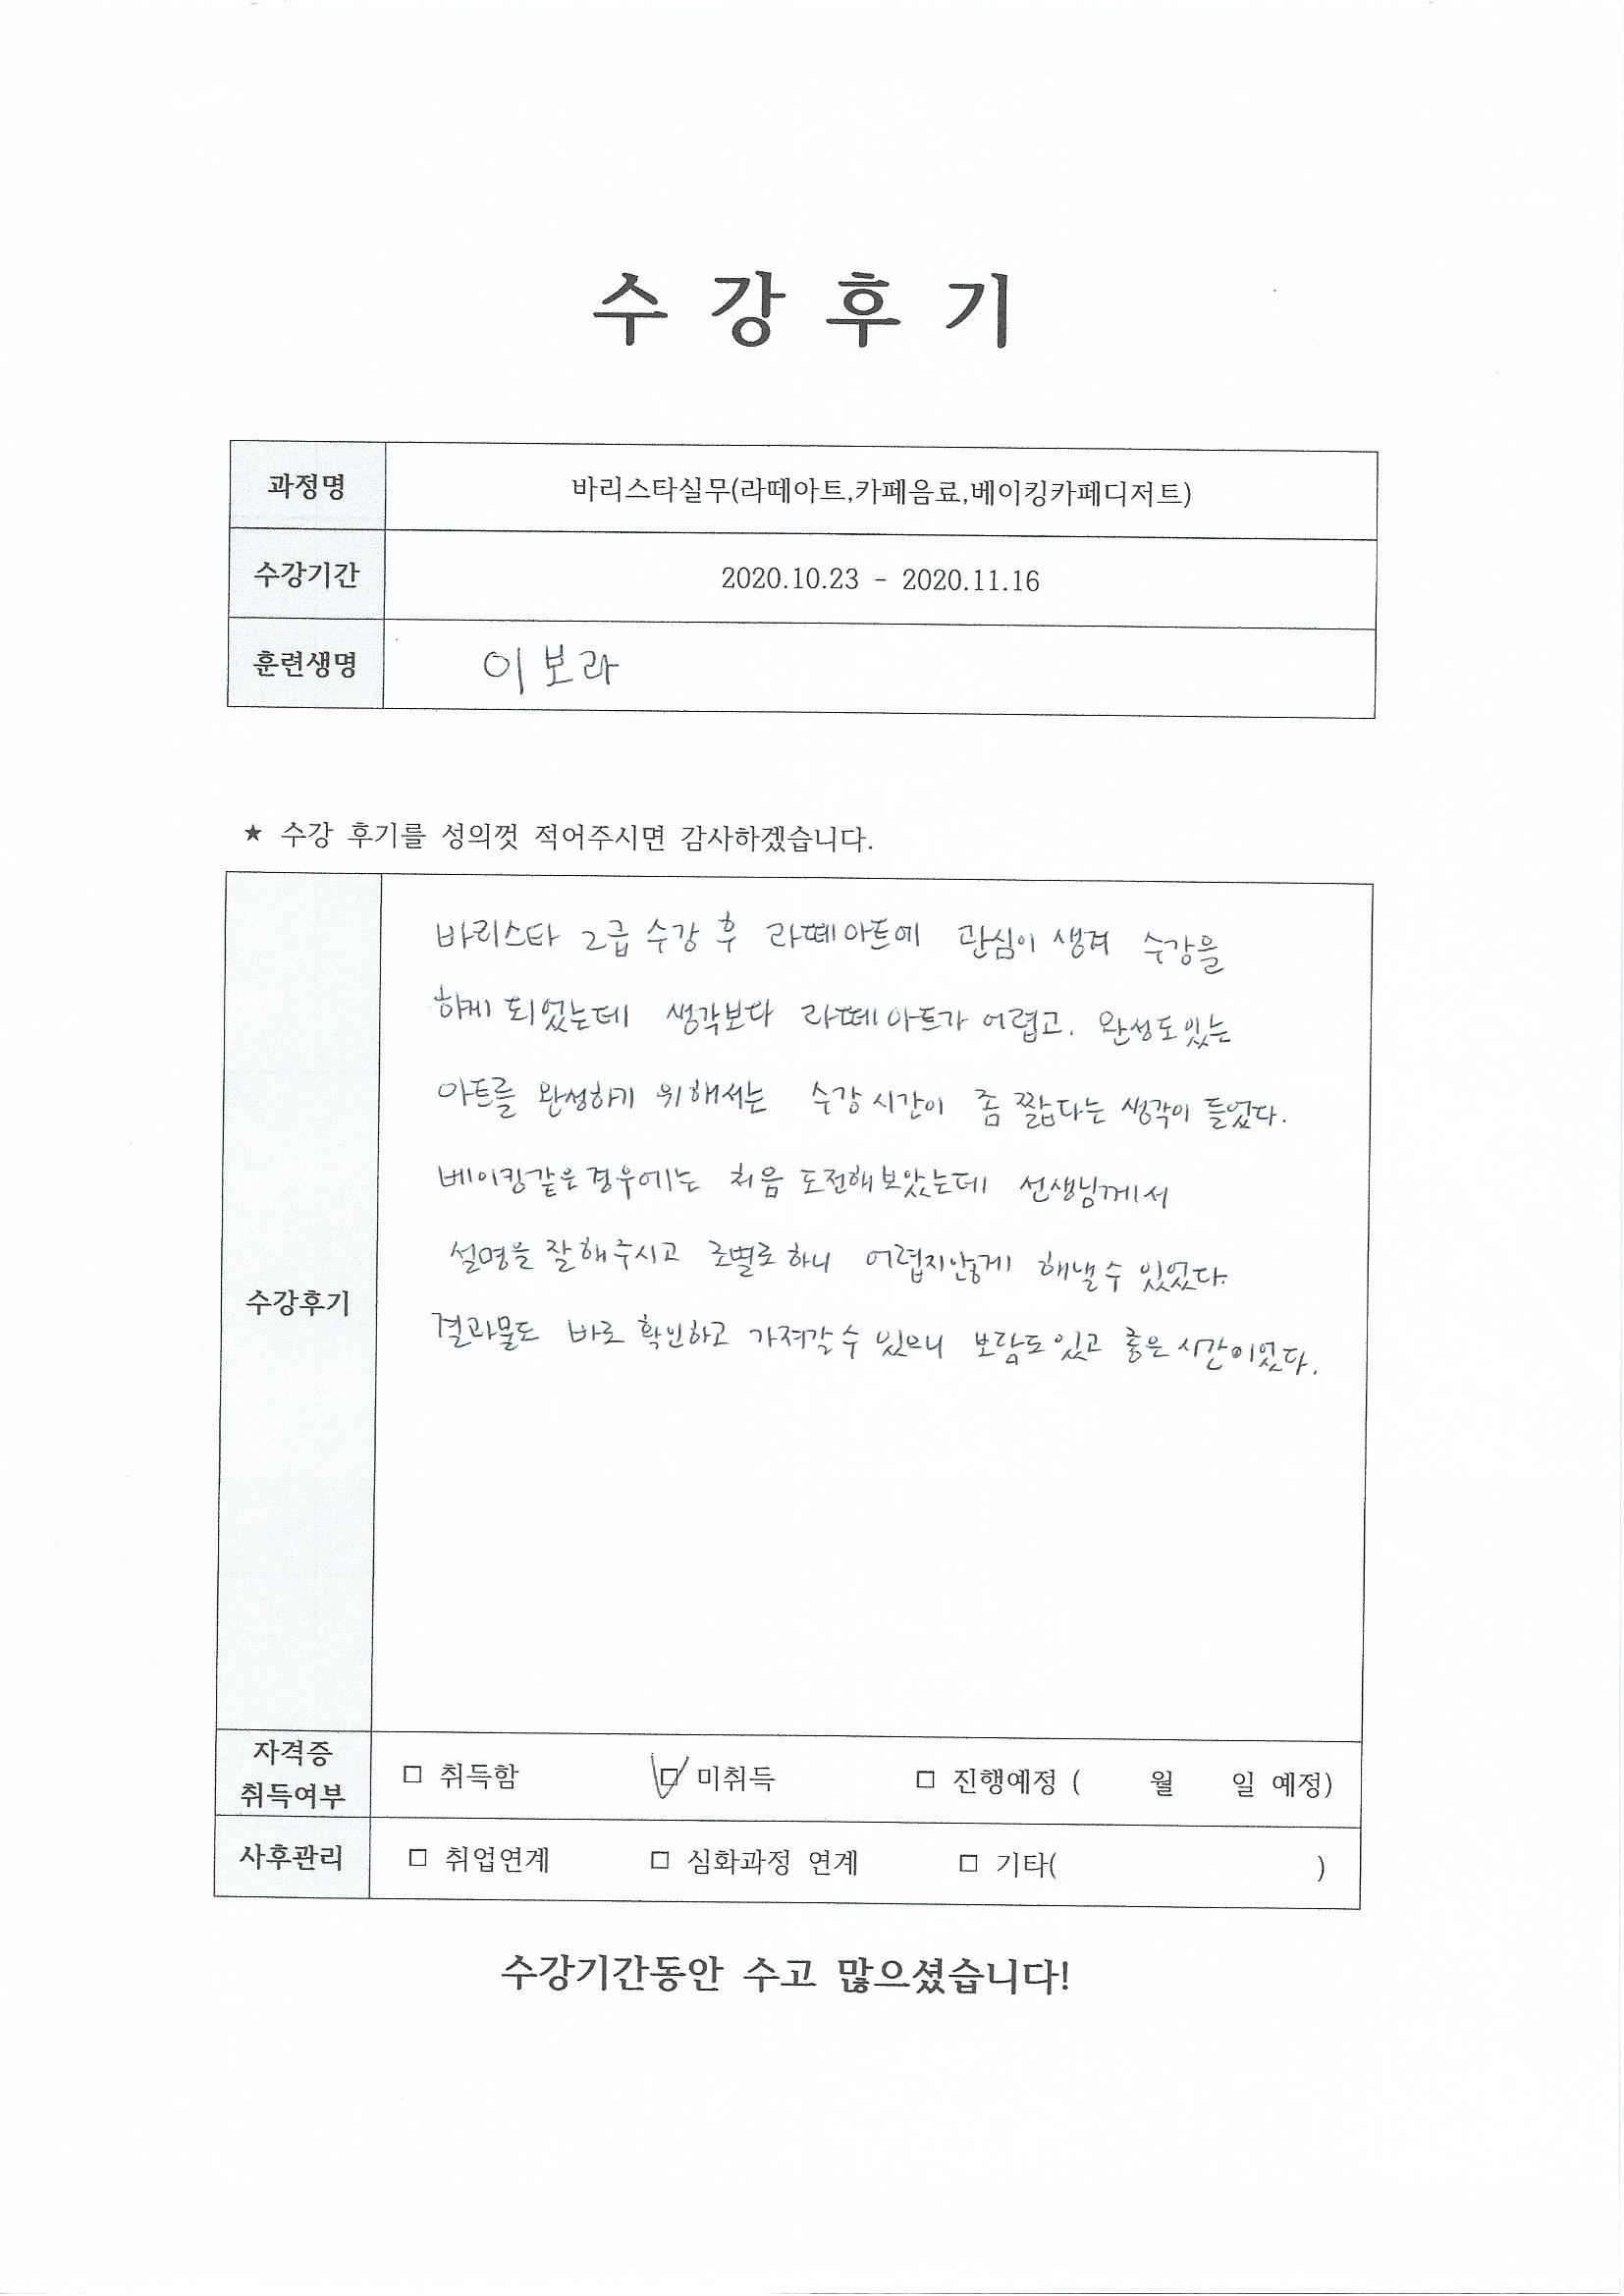 수 강 후 기
과정명 바리스타실무(라떼아트,카페음료,베이킹카페디저트)
수강기간 2020.10.23 - 2020.11.16
훈련생명 이보라
★ 수강 후기를 성의껏 적어주시면 감사하겠습니다.
바리스타 2급 수강 후 라떼아트에 관심이 생겨 수강을
하게 되었는데 생각보다 라떼아트가 어렵고. 완성도있는
아트를 완성하기 위해서는 수강시간이 좀 짧다는 생각이 들었다.
베이킹같은경우에는 처음 도전해보았는데 선생님께서
설명을 잘해주시고 조별로하니 어렵지않게 해낼수 있었다.
수강후기
결과물도 바로 확인하고 가져갈수 있으니 보람도있고 좋은시간이었다.
자격증
취득여부 □ 취득함 ☑ 미취득 □ 진행예정 ( 월 일 예정)
사후관리 □ 취업연계 □ 심화과정 연계 □ 기타( )
수강기간동안 수고 많으셨습니다!